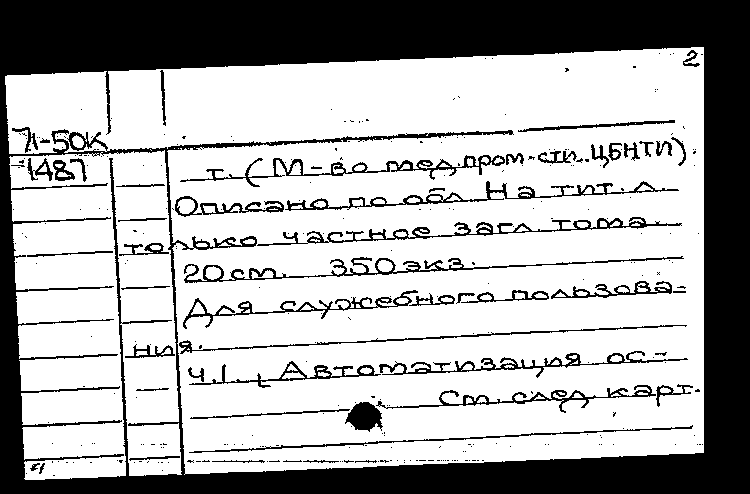 2
71-50К
1487
т. (М-во мед.пром-сти. ЦБНТИ).
Описано по обл. На тит. л.
только частное загл. тома.
20 см. 350 экз.
Для служебного пользова-
ния.
Ч.1. Автоматизация ос-
См. след. карт.